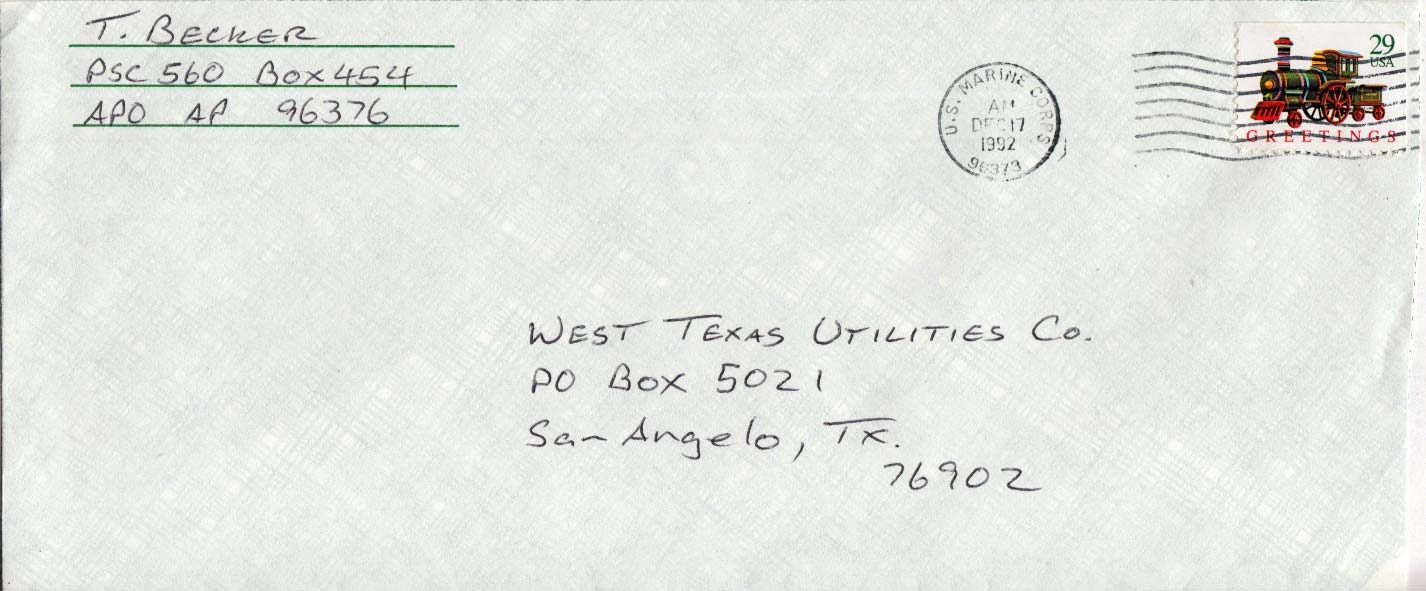 T. BECKER
PSC 560 BOX 454
APO AP 96376
U.S. MARINE CORPS
AM
DEC 17
1992
96373
29
USA
GREETINGS
WEST TEXAS UTILITIES CO.
PO BOX 5021
San Angelo, TX.
76902